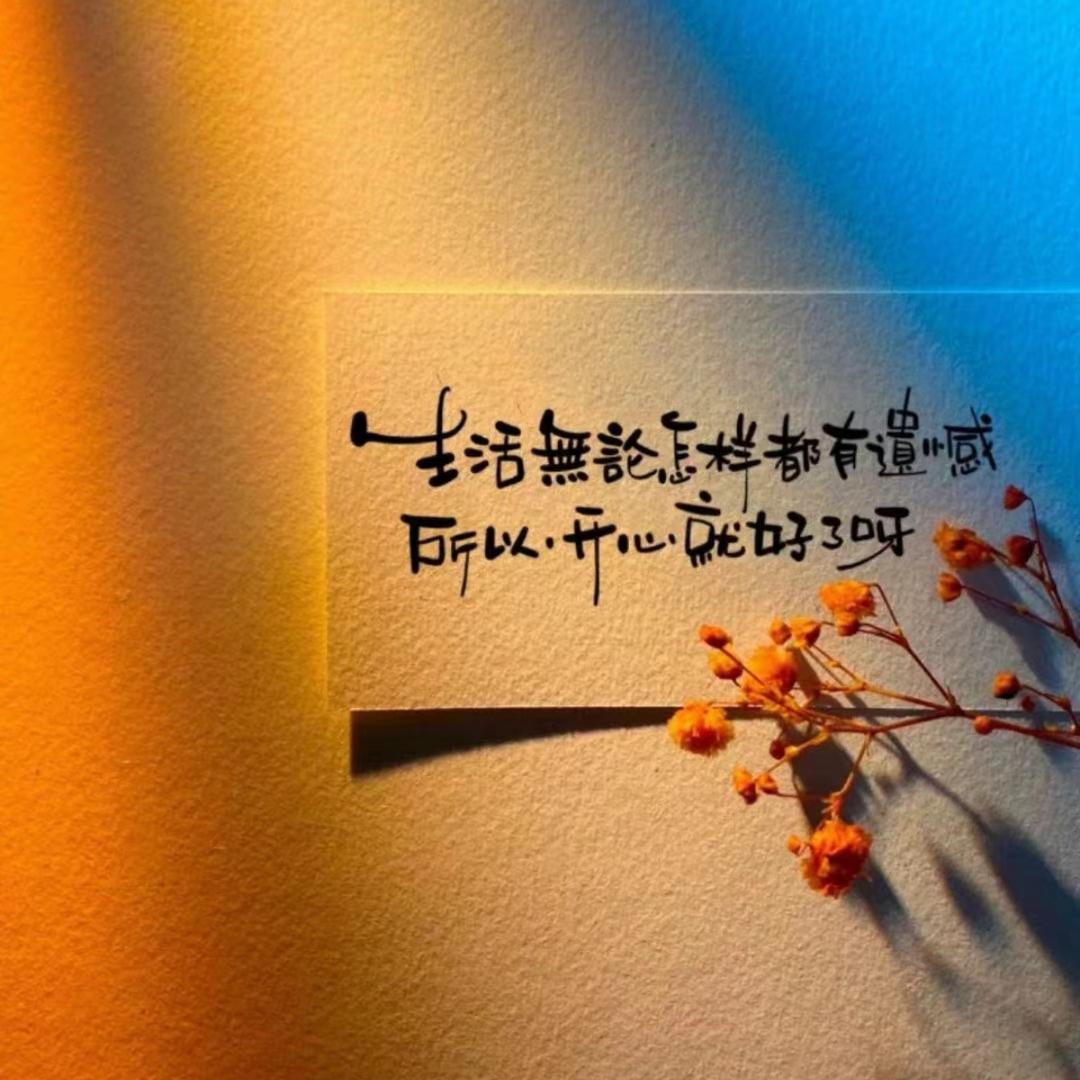 生活無論怎样都有遺憾
所以·开心·就好了呀